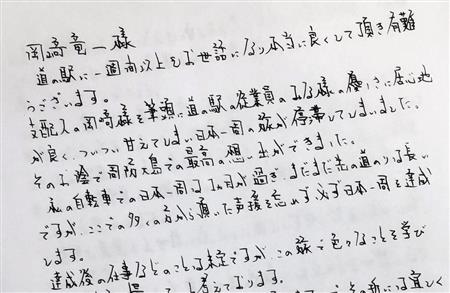 岡崎竜一様
道の駅に一週間以上もお世話になり本当に良くして頂き有難
うございます。
支配人の岡崎様を筆頭に道の駅の従業員のみな様の優しさに居心地
が良く、ついつい甘えてしまい日本一周の旅が停滞してしまいました。
そのお陰で周防大島での最高の想い出ができました。
私の自転車での日本一周は1ヶ月が過ぎ、まだまだ先の道のりは長い
ですが、ここでの多くの方から頂いた声援を忘れず必ず日本一周を達成
します。
達成後の仕事などのことは未定ですが、この旅で色々なことを学び
考えております。
宜しく